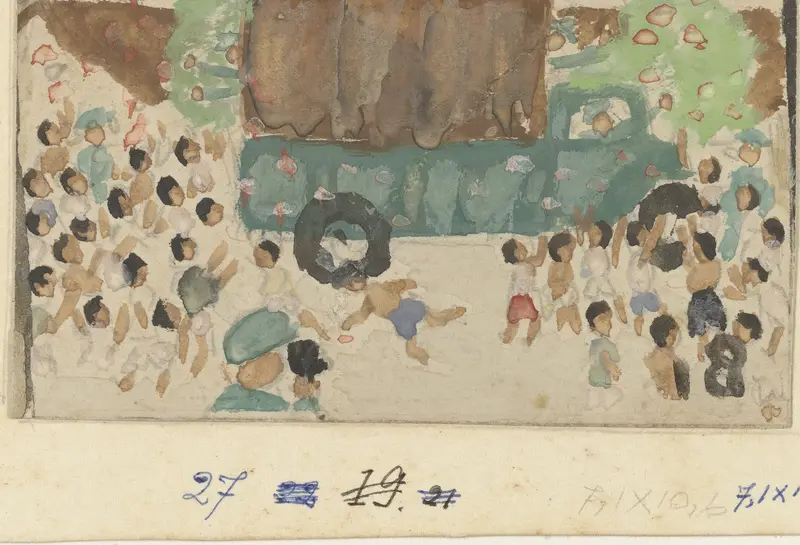 27 19. 21 7,1 X 10,6 7,1 X 1